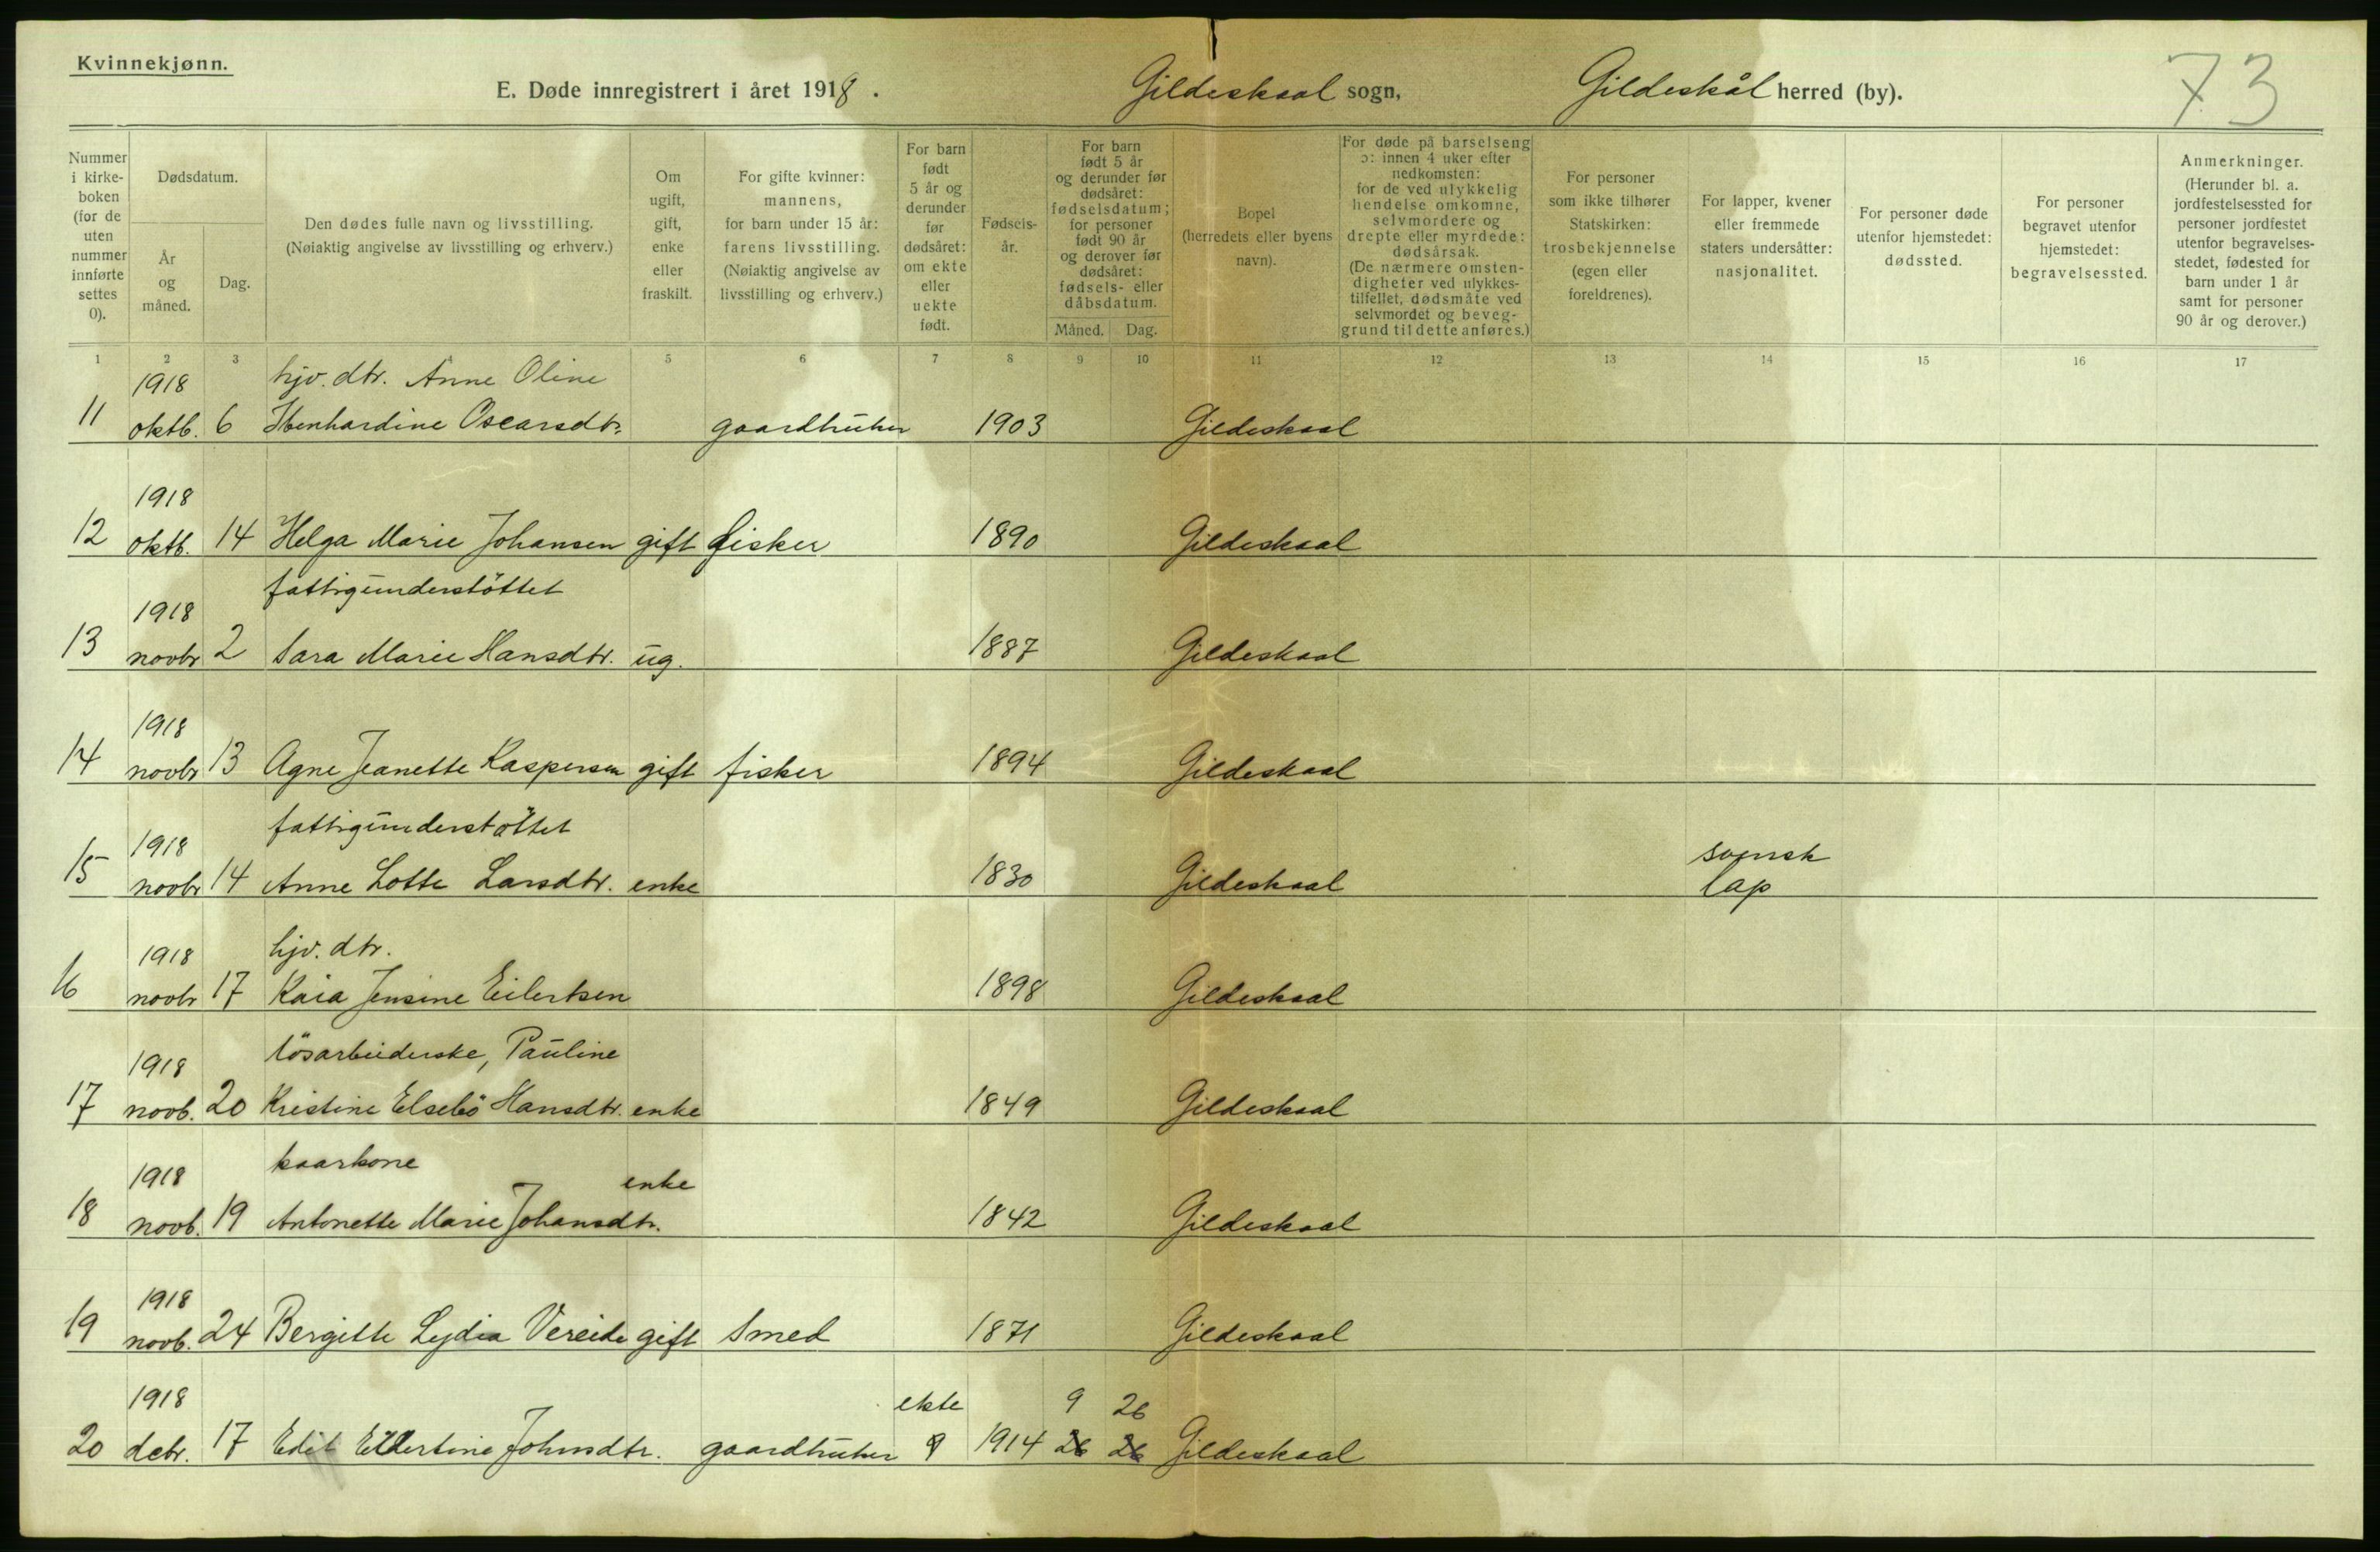 Kvinnekjønn.
E. Døde innregistrert i året 1918. Gildeskaal sogn, Gildeskål herred (by). 73
Nummer i kirkeboken (for de uten nummer innførte settes 0).
Dødsdatum.
År og måned.
Dag.
Den dødes fulle navn og livsstilling.
(Nøiaktig angivelse av livsstilling og erhverv.)
Om ugift, gift, enke eller fraskilt.
For gifte kvinner: mannens, for barn under 15 år: farens livsstilling. (Nøiaktig angivelse av livsstilling og erhverv.)
For barn født 5 år og derunder før dødsåret: om ekte eller uekte født.
Fødselsår.
For barn født 5 år og derunder før dødsåret: fødselsdatum; for personer født 90 år og derover før dødsåret: fødsels- eller dåbsdatum.
Måned. Dag.
Bopel (herredets eller byens navn).
For døde på barselseng ɔ: innen 4 uker efter nedkomsten: for de ved ulykkelig hendelse omkomne, selvmordere og drepte eller myrdede: dødsårsak. (De nærmere omstendigheter ved ulykkestilfellet, dødsmåte ved selvmordet og beveggrund til dette anføres.)
For personer som ikke tilhører Statskirken: trosbekjennelse (egen eller foreldrenes).
For lapper, kvener eller fremmede staters undersåtter: nasjonalitet.
For personer døde utenfor hjemstedet: dødssted.
For personer begravet utenfor hjemstedet: begravelsessted.
Anmerkninger. (Herunder bl. a. jordfestelsessted for personer jordfestet utenfor begravelsesstedet, fødested for barn under 1 år samt for personer 90 år og derover.)
1 2 3 4 5 6 7 8 9 10 11 12 13 14 15 16 17
1918 hjv. dtr. Anne Oline
11 oktb. 6 Ibenhardine Oscarsdtr. gaardbruker 1903 Gildeskaal
1918
12 oktb. 14 Helga Marie Johansen gift fisker 1890 Gildeskaal
1918 fattigunderstöttet
13 novbr 2 Sara Marie Hansdtr. ug. 1887 Gildeskaal
1918
14 novbr 13 Agne Jeanette Kaspersen gift fisker 1894 Gildeskaal
1918 fattigunderstöttet svensk
15 novbr 14 Anne Lotte Larsdtr. enke 1830 Gildeskaal lap
1918 hjv. dtr.
16 novbr 17 Kaia Jensine Eilertsen 1898 Gildeskaal
1918 lösarbeiderske, Pauline
17 novb. 20 Kristine Elsebö Hansdtr. enke 1849 Gildeskaal
1918 kaarkone enke
18 novb. 19 Antonette Marie Johansdtr. 1842 Gildeskaal
1918
19 novb. 24 Bergitte Lydia Vereide gift Smed 1871 Gildeskaal
1918 ekte 9 26
20 debr. 17 Edit Eldertine Johnsdtr. gaardbruker 9 1914 26 26 Gildeskaal